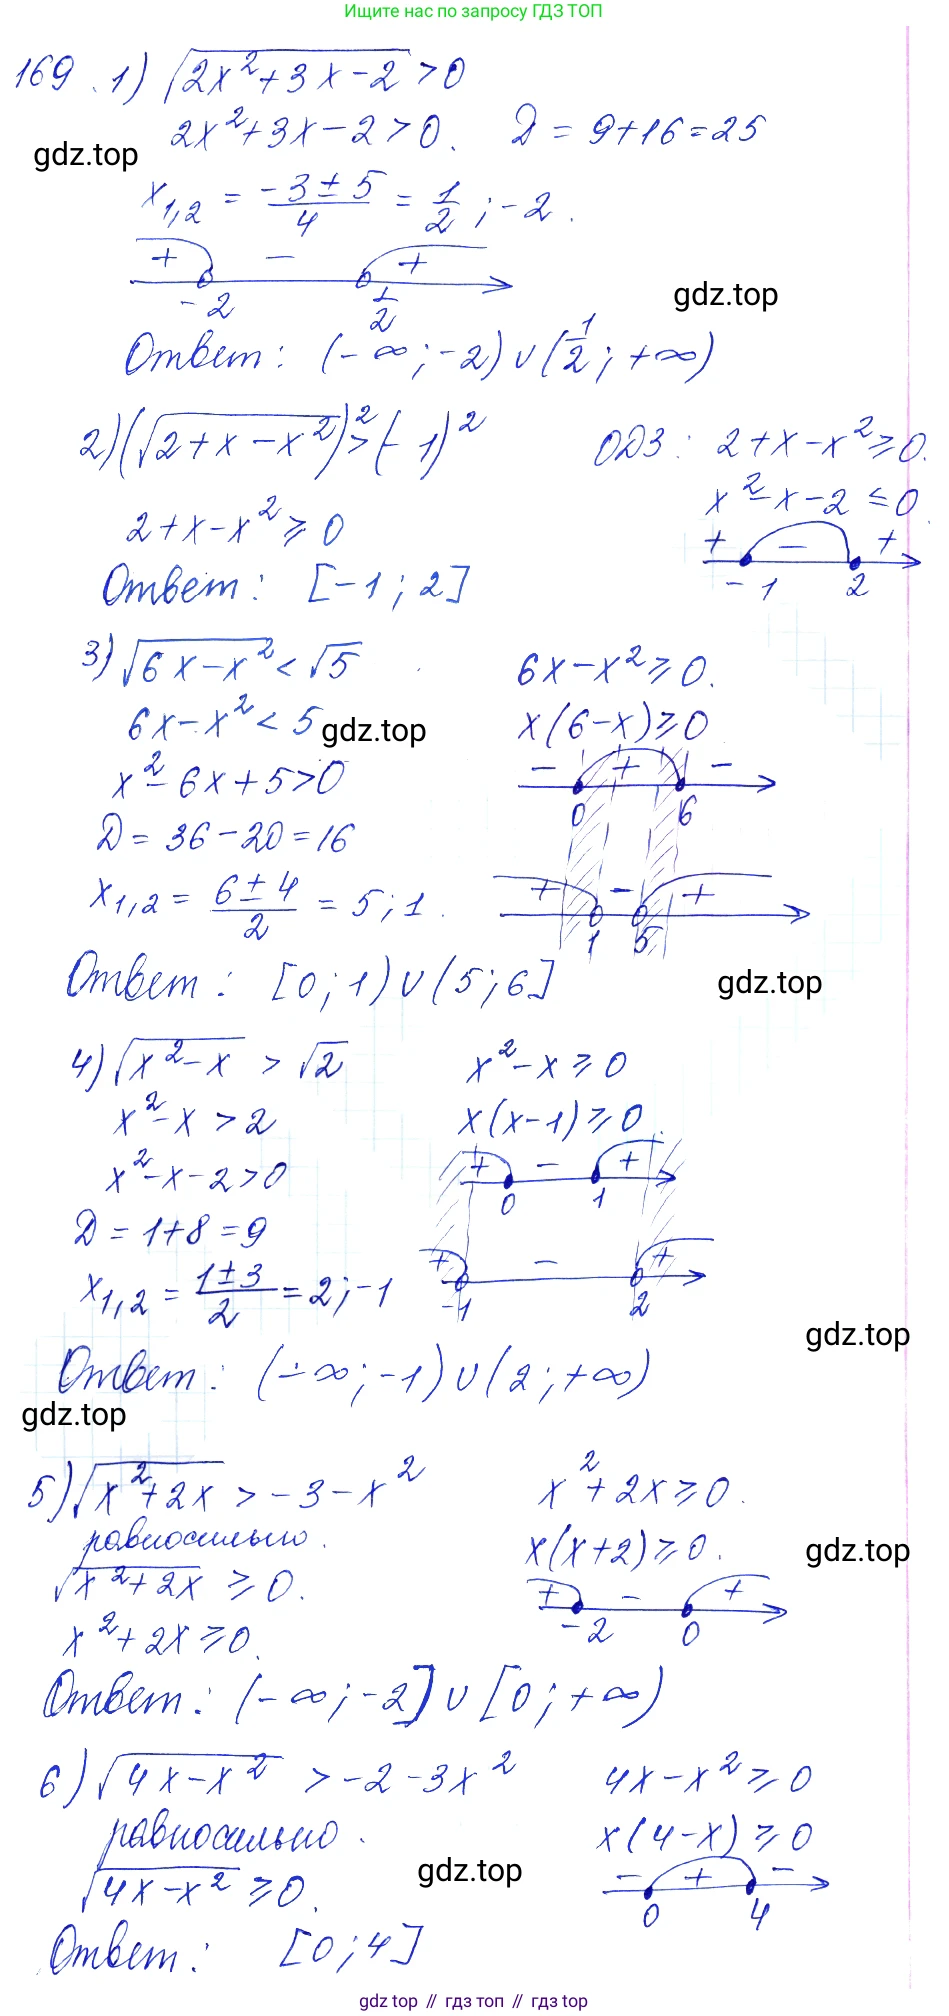 Ищите нас по запросу ГДЗ ТОП
169. 1) √(2x²+3x-2) > 0
2x²+3x-2>0. D = 9+16=25
gdz.top
x₁,₂ = (-3±5)/4 = 1/2; -2.
+ - +
-2 1/2
gdz.top
Ответ: (-∞;-2)∪(1/2; +∞)
2) (√(2+x-x²))²>(-1)² ОДЗ: 2+x-x²≥0.
x²-x-2≤0
2+x-x²≥0
+ - +
-1 2
Ответ: [-1; 2]
3) √(6x-x²) < √5 6x-x²≥0.
6x-x²<5 x(6-x)≥0
gdz.top
x²-6x+5>0
- + -
0 6
D = 36-20=16
x₁,₂ = (6±4)/2 = 5; 1.
+ - +
1 5
Ответ: [0; 1)∪(5; 6]
gdz.top
4) √(x²-x) > √2 x²-x≥0
x²-x>2 x(x-1)≥0.
x²-x-2>0
+ - +
0 1
D = 1+8=9
x₁,₂ = (1±3)/2 = 2; -1
+ - +
-1 2
gdz.top
Ответ: (-∞; -1)∪(2; +∞)
gdz.top
5) √(x²+2x) > -3-x² x²+2x≥0.
равносильно. x(x+2)≥0.
gdz.top
√(x²+2x) ≥0.
+ - +
-2 0
x²+2x≥0.
Ответ: (-∞; -2]∪[0; +∞)
6) √(4x-x²) > -2-3x² 4x-x²≥0
равносильно. x(4-x)≥0
gdz.top
√(4x-x²) ≥0.
- + -
0 4
Ответ: [0; 4]
gdz top // гдз топ // гдз top